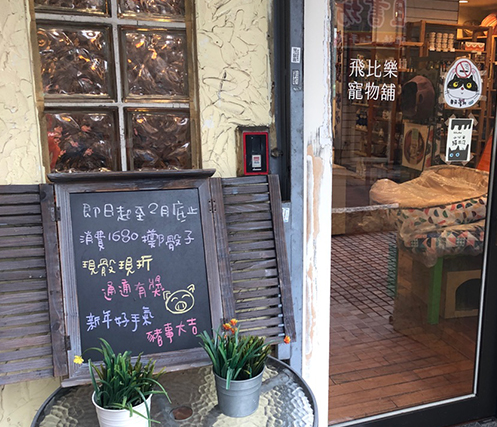 即日起至2月底止
消費1680擲骰子
現骰現折
通通有獎
新年好手氣
豬事大吉
飛比樂
寵物舖